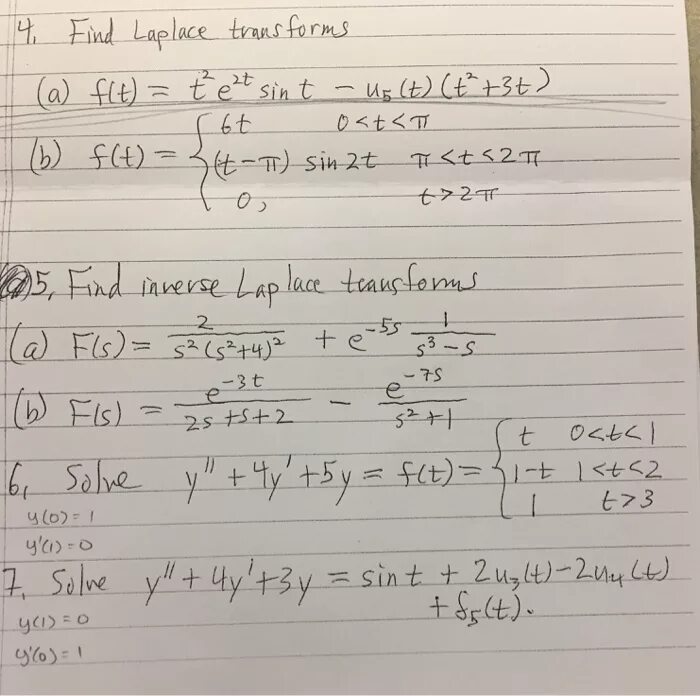 4. Find Laplace transforms
(a) f(t) = t²e²ᵗ sin t − u₅(t)(t²+3t)
(b) f(t) = { 6t 0<t<π
(t−π) sin 2t π<t<2π
0, t>2π
5. Find inverse Laplace transforms
(a) F(s) = 2/(s²(s²+4)²) + e^(−5s) 1/(s³−s)
(b) F(s) = e^(−3t)/(2s+s+2) − e^(−7s)/(s²+1)
6. Solve y″ + 4y′ + 5y = f(t) = { t 0<t<1
1−t 1<t<2
1 t>3
y(0) = 1
y′(1) = 0
7. Solve y″ + 4y′ + 3y = sin t + 2u₃(t) − 2u₄(t)
+ δ₅(t).
y(1) = 0
y′(0) = 1